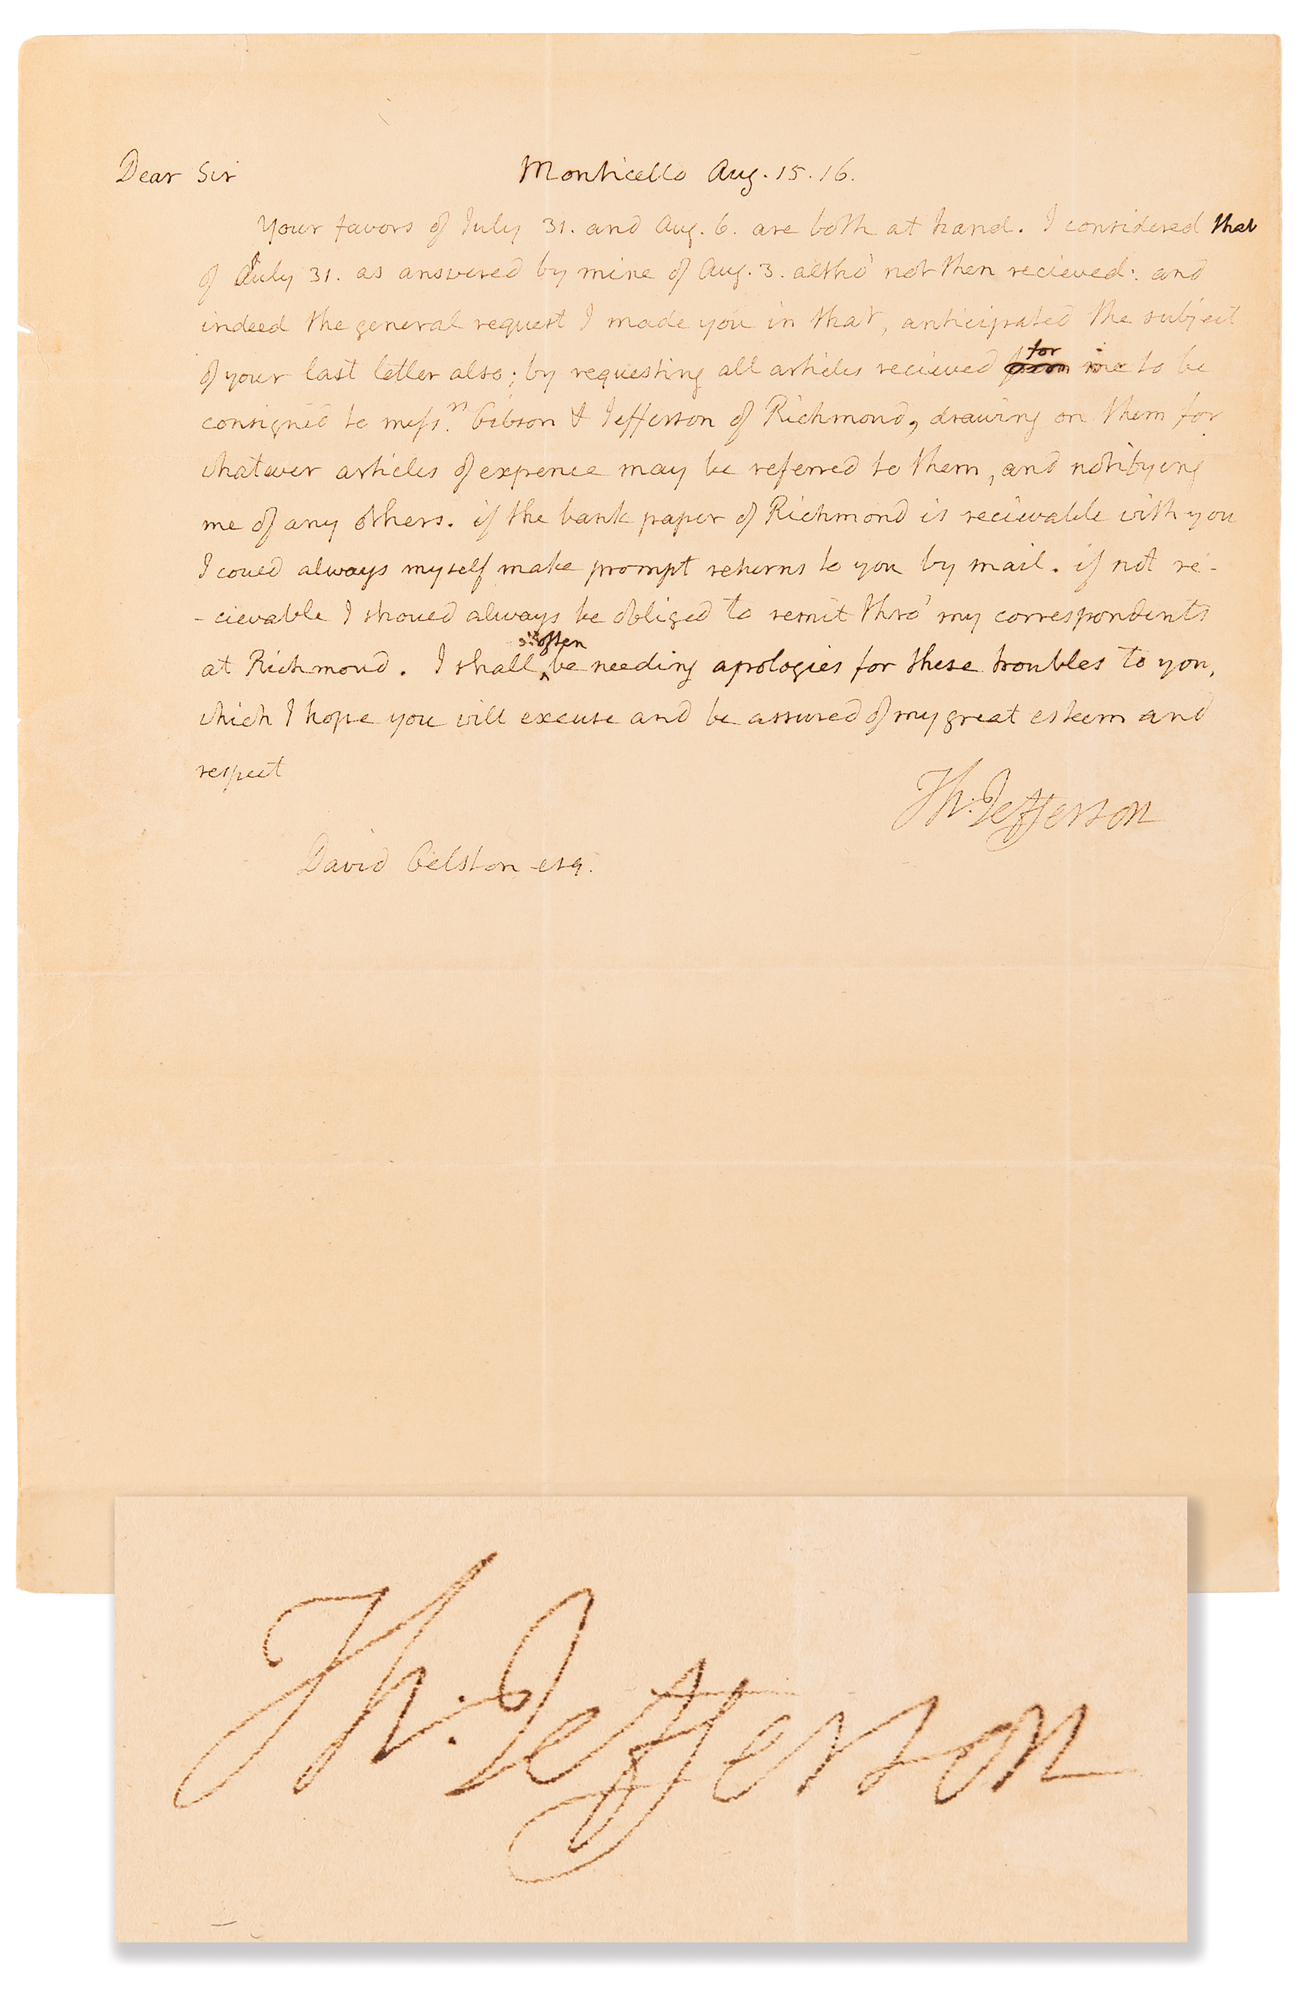 Dear Sir Monticello Aug. 15. 16.
Your favors of July 31. and Aug. 6. are both at hand. I considered that
of July 31. as answered by mine of Aug. 3. altho' not then recieved: and
indeed the general request I made you in that, anticipated the subject
of your last letter also; by requesting all articles recieved for me to be
consigned to mess.rs Gibson & Jefferson of Richmond, drawing on them for
whatever articles of expence may be referred to them, and notifying
me of any others. if the bank paper of Richmond is recievable with you
I could always myself make prompt returns to you by mail. if not re-
-cievable I should always be obliged to remit thro' my correspondents
at Richmond. I shall so often be needing apologies for these troubles to you,
which I hope you will excuse and be assured of my great esteem and
respect
Th: Jefferson
David Gelston esq.
Th: Jefferson